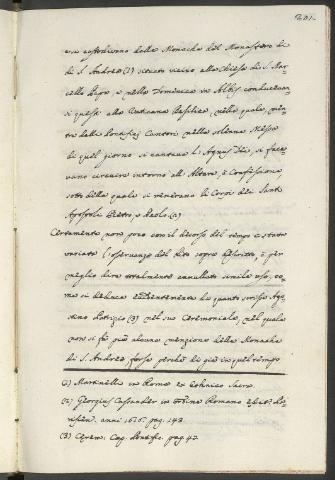 201.
si custodivano dalle Monache del Monastero di
di S. Andrea (1) situato vicino alla Chiesa di S. Mar-
cello Papa, e nella Domenica in Albis conducevan-
si queste alla Vaticana Basilica, nella quale men-
tre dalli Pontificj Cantori nella solenne Messa
di quel giorno si cantava l'Agnus Dei, si face-
vano circuire intorno all'Altare, e Confessione
sotto della quale si venerano li Corpi dei Santi
Apostoli Pietro, e Paolo (2)
Certamento però que con il decorso del tempo è stata
variata l'osservanza del Rito sopra descritto, e per
meglio dire totalmente annullato simile uso, co-
me si deduce evidentemente da quanto scrisse Ago-
stino Patrizio (3) nel suo Ceremoniale, nel quale
non si fa più alcuna menzione delle Monache
di S. Andrea, forse perchè di già in quel tempo
(1) Martinelli in Roma ex Ethnica Sacra.
(2) Georgius Cassander in Ordine Romano edit. Pa-
risien. anni 1616. pag. 143.
(3) Cerem. Cap. Pontific. pag. 42.